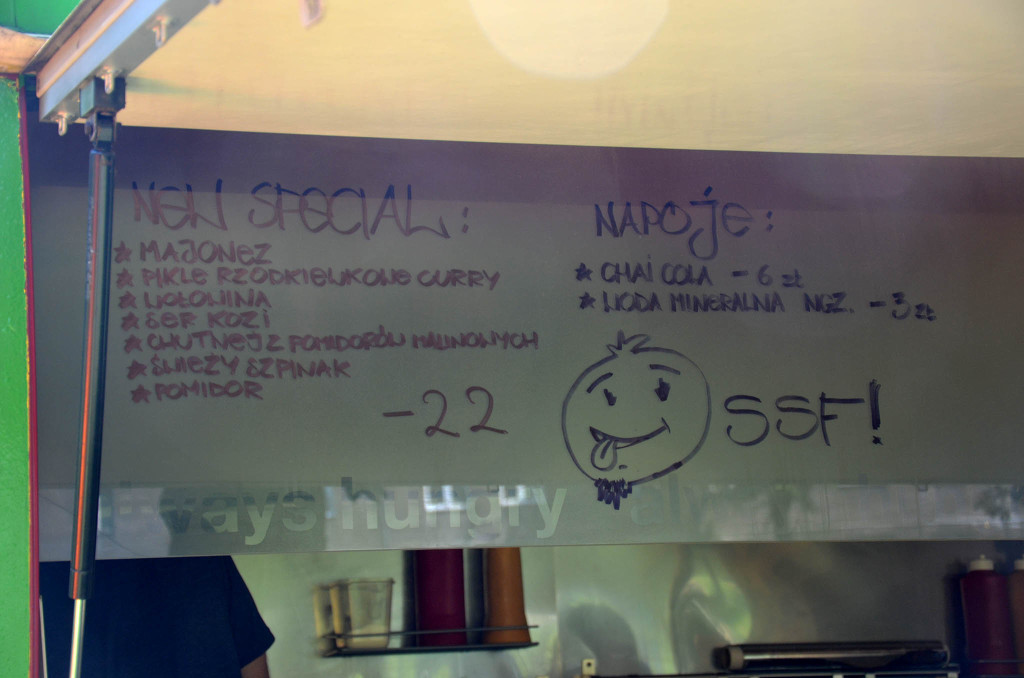 NEW SPECIAL:
* MAJONEZ
* PIKLE RZODKIEWKOWE CURRY
* WOŁOWINA
* SER KOZI
* CHUTNEJ Z POMIDORÓW MALINOWYCH
* ŚWIEŻY SZPINAK
* POMIDOR
-22
NAPOJE:
* CHAI COLA - 6 zł
* WODA MINERALNA NGZ. - 3 zł
SSF!
always hungry